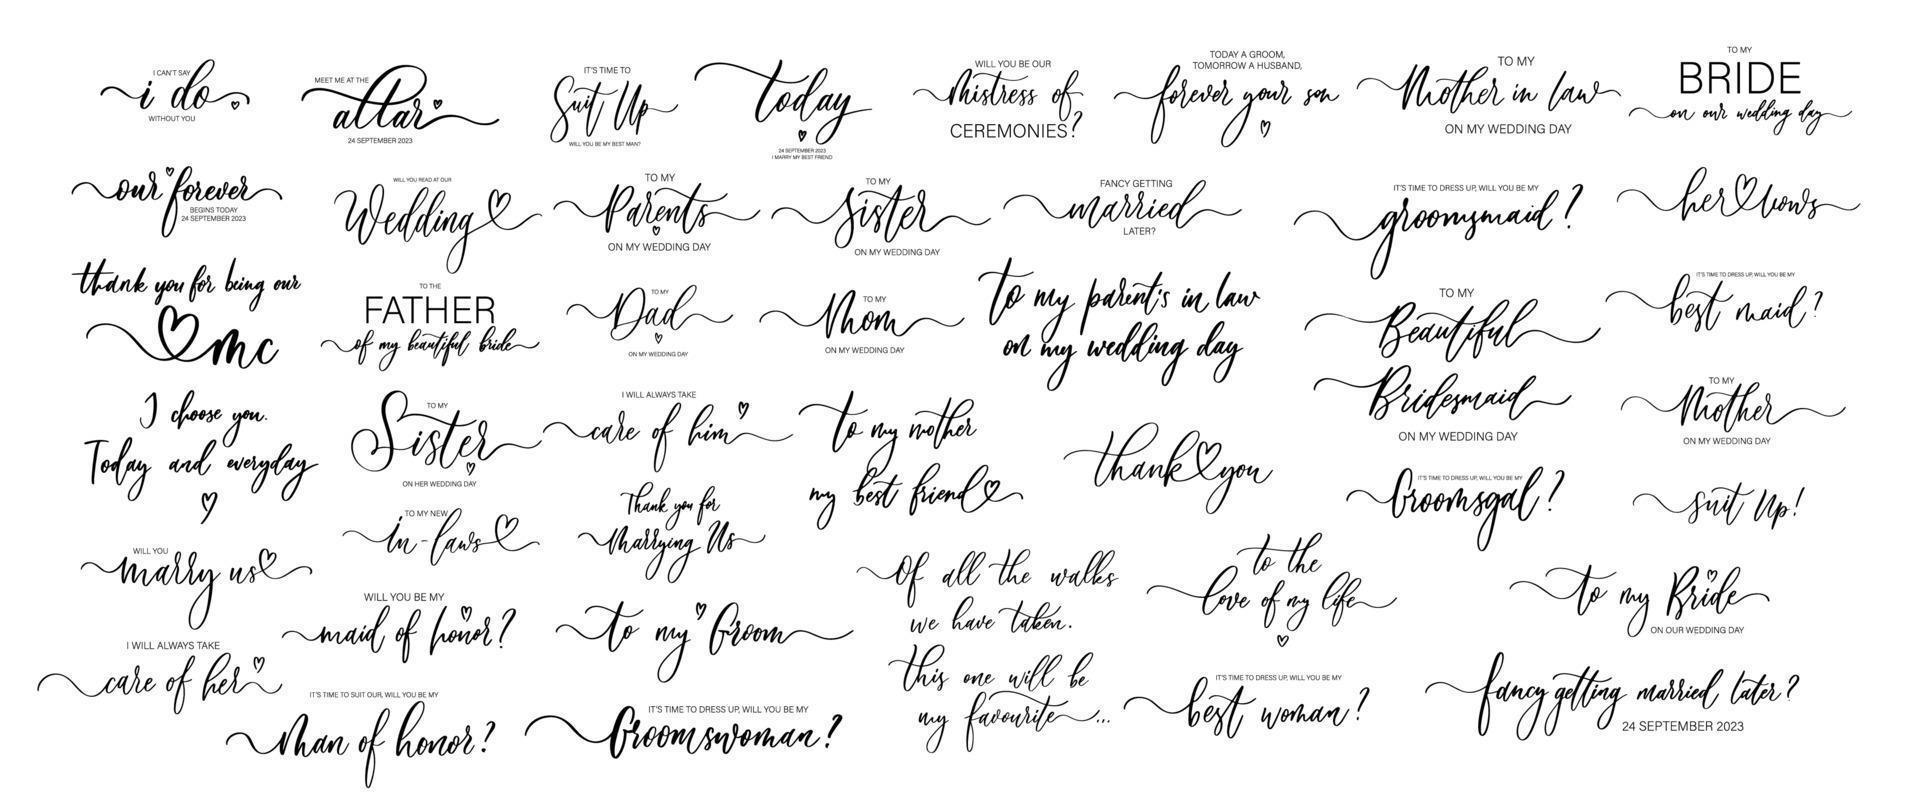 I CAN'T SAY
i do
WITHOUT YOU
MEET ME AT THE
altar
24 SEPTEMBER 2023
IT'S TIME TO
Suit Up
WILL YOU BE MY BEST MAN?
today
24 SEPTEMBER 2023
I MARRY MY BEST FRIEND
WILL YOU BE OUR
Mistress of
CEREMONIES?
TODAY A GROOM,
TOMORROW A HUSBAND,
forever your son
TO MY
Mother in law
ON MY WEDDING DAY
TO MY
BRIDE
on our wedding day
our forever
BEGINS TODAY
24 SEPTEMBER 2023
WILL YOU READ AT OUR
Wedding
TO MY
Parents
ON MY WEDDING DAY
TO MY
Sister
ON MY WEDDING DAY
FANCY GETTING
married
LATER?
IT'S TIME TO DRESS UP, WILL YOU BE MY
groomsmaid?
her vows
thank you for being our
mc
TO THE
FATHER
of my beautiful bride
TO MY
Dad
ON MY WEDDING DAY
TO MY
Mom
ON MY WEDDING DAY
to my parent's in law
on my wedding day
TO MY
Beautiful
Bridesmaid
ON MY WEDDING DAY
IT'S TIME TO DRESS UP, WILL YOU BE MY
best maid?
I choose you.
Today and everyday
TO MY
Sister
ON HER WEDDING DAY
I WILL ALWAYS TAKE
care of him
to my mother
my best friend
thank you
TO MY
Mother
ON MY WEDDING DAY
IT'S TIME TO DRESS UP, WILL YOU BE MY
Groomsgal?
suit Up!
WILL YOU
marry us
TO MY NEW
in-laws
Thank you for
Marrying Us
Of all the walks
we have taken.
this one will be
my favourite...
to the
love of my life
to my Bride
ON OUR WEDDING DAY
WILL YOU BE MY
maid of honor?
to my Groom
I WILL ALWAYS TAKE
care of her
IT'S TIME TO SUIT OUR, WILL YOU BE MY
Man of honor?
IT'S TIME TO DRESS UP, WILL YOU BE MY
Groomswoman?
IT'S TIME TO DRESS UP, WILL YOU BE MY
best woman?
fancy getting married later?
24 SEPTEMBER 2023